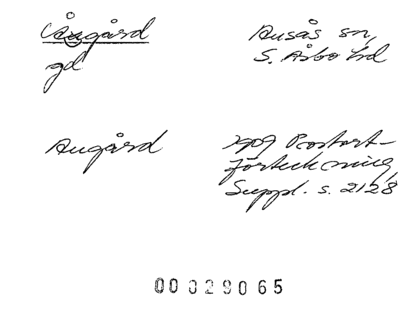 gd
Ausås sn,
S. Åsbo hd
Augård
1909 Postort-
förteckning,
Suppl. s. 2128